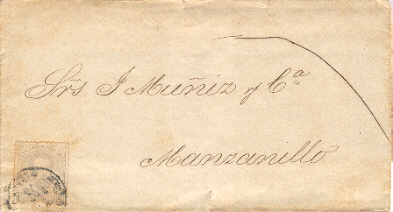 Srs J Muñiz y Cª
Manzanillo